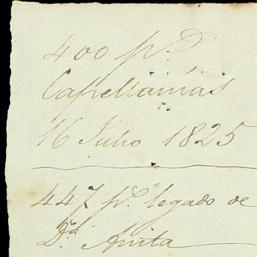 400 p.s
Capellanias
16 Julio 1825
447 p.s legado de
D.ña Anita